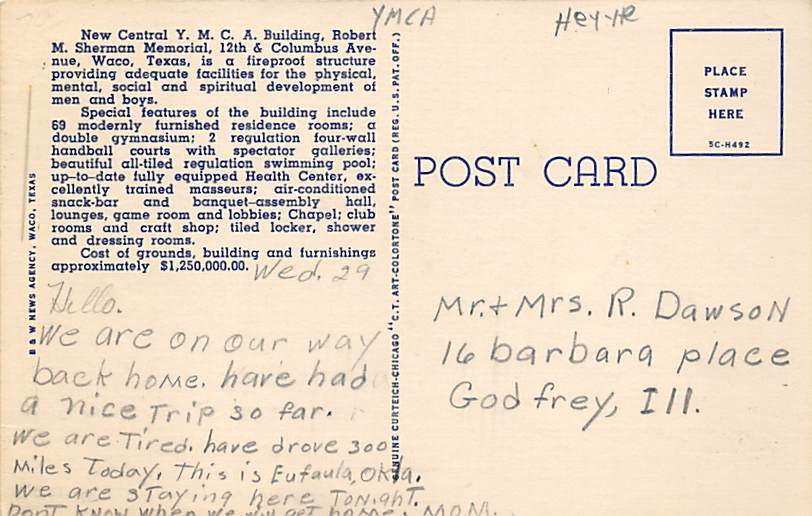 YMCA
New Central Y. M. C. A. Building, Robert
M. Sherman Memorial, 12th & Columbus Ave-
nue, Waco, Texas, is a fireproof structure
providing adequate facilities for the physical,
mental, social and spiritual development of
men and boys.
Special features of the building include
69 modernly furnished residence rooms; a
double gymnasium; 2 regulation four-wall
handball courts with spectator galleries;
beautiful all-tiled regulation swimming pool;
up-to-date fully equipped Health Center, ex-
cellently trained masseurs; air-conditioned
snack-bar and banquet-assembly hall,
lounges, game room and lobbies; Chapel; club
rooms and craft shop; tiled locker, shower
and dressing rooms.
Cost of grounds, building and furnishings
approximately $1,250,000.00.
B & W NEWS AGENCY, WACO, TEXAS
Wed. 29
Hello.
We are on our way
back home. have had
a nice Trip so far.
We are Tired. have drove 300
Miles Today. This is Eufaula, Okla.
We are sTaying here TonighT.
Don'T know when we will get home. MOM.
GENUINE CURTEICH-CHICAGO "C.T. ART-COLORTONE" POST CARD (REG. U.S. PAT. OFF.)
POST CARD
PLACE
STAMP
HERE
5C-H492
Mr. + Mrs. R. Dawson
16 barbara place
Godfrey, Ill.